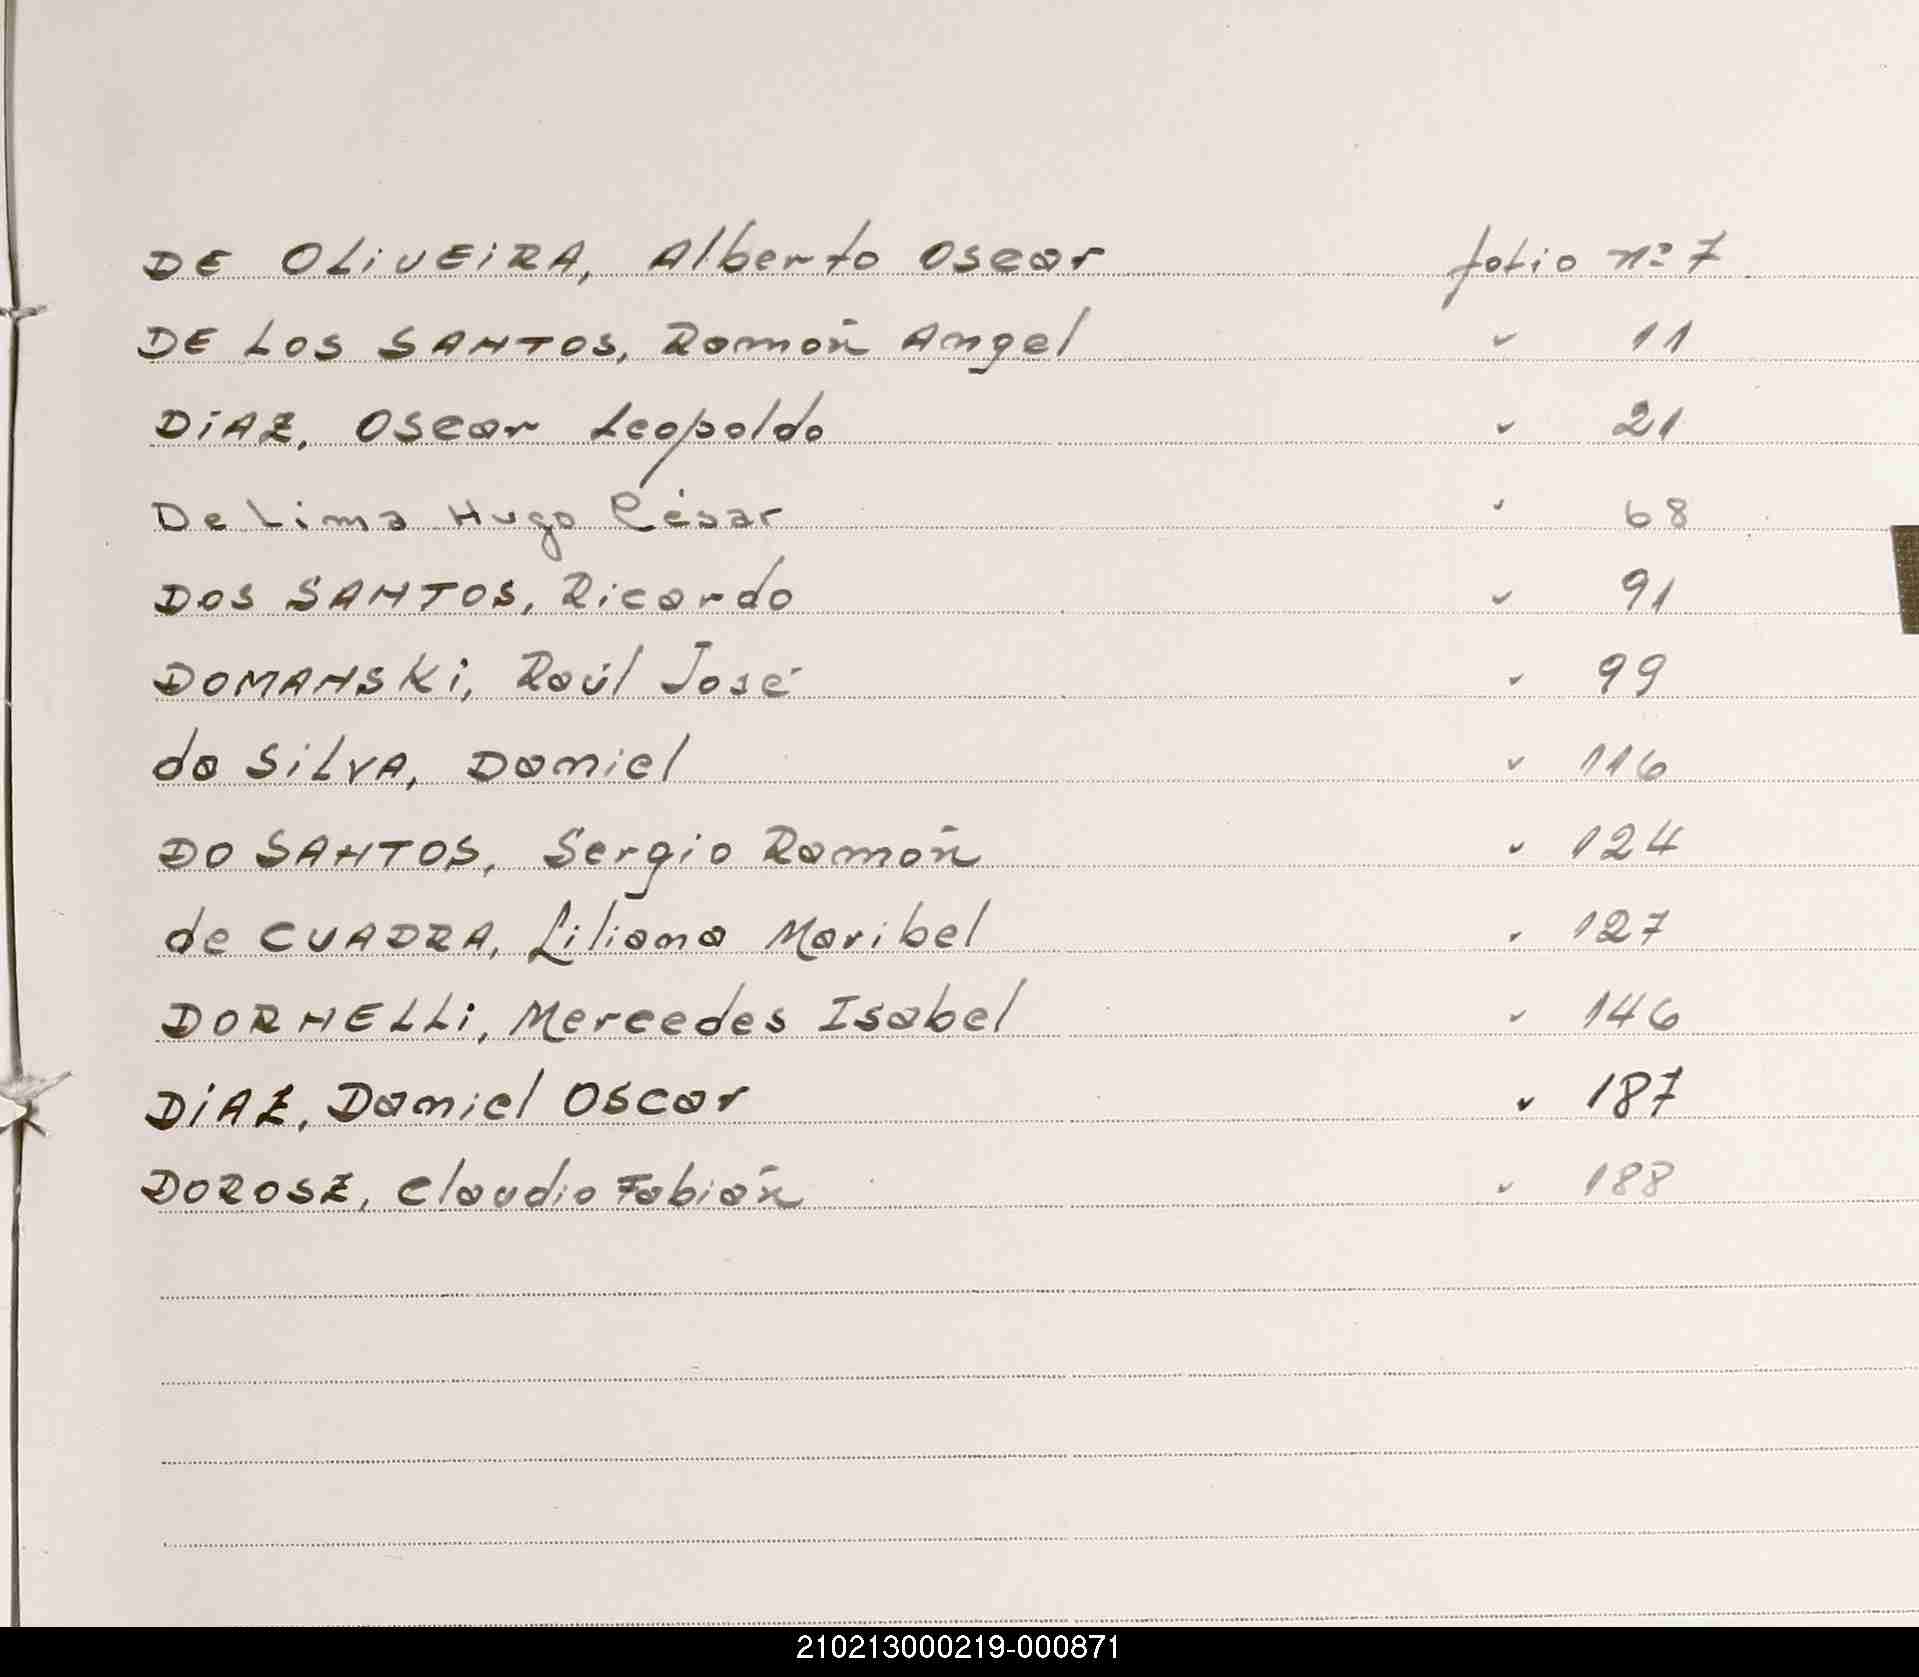 DE OLIVEIRA, Alberto Oscar folio nº 7
DE LOS SANTOS, Ramón Angel " 11
DIAZ, Oscar Leopoldo " 21
De Lima Hugo César " 68
DOS SANTOS, Ricardo " 91
DOMANSKI, Raúl José " 99
da SILVA, Daniel " 116
DO SANTOS, Sergio Ramón " 124
de CUADRA, Liliana Maribel " 127
DORNELLI, Mercedes Isabel " 146
DIAZ, Daniel Oscar " 187
DOROSZ, Claudio Fabián " 188
210213000219-000871